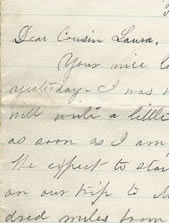 Dear Cousin Laura,
Your nice l
yesterday - I was
will write a little
as soon as I am
We expect to star
on our trip to
dred miles from